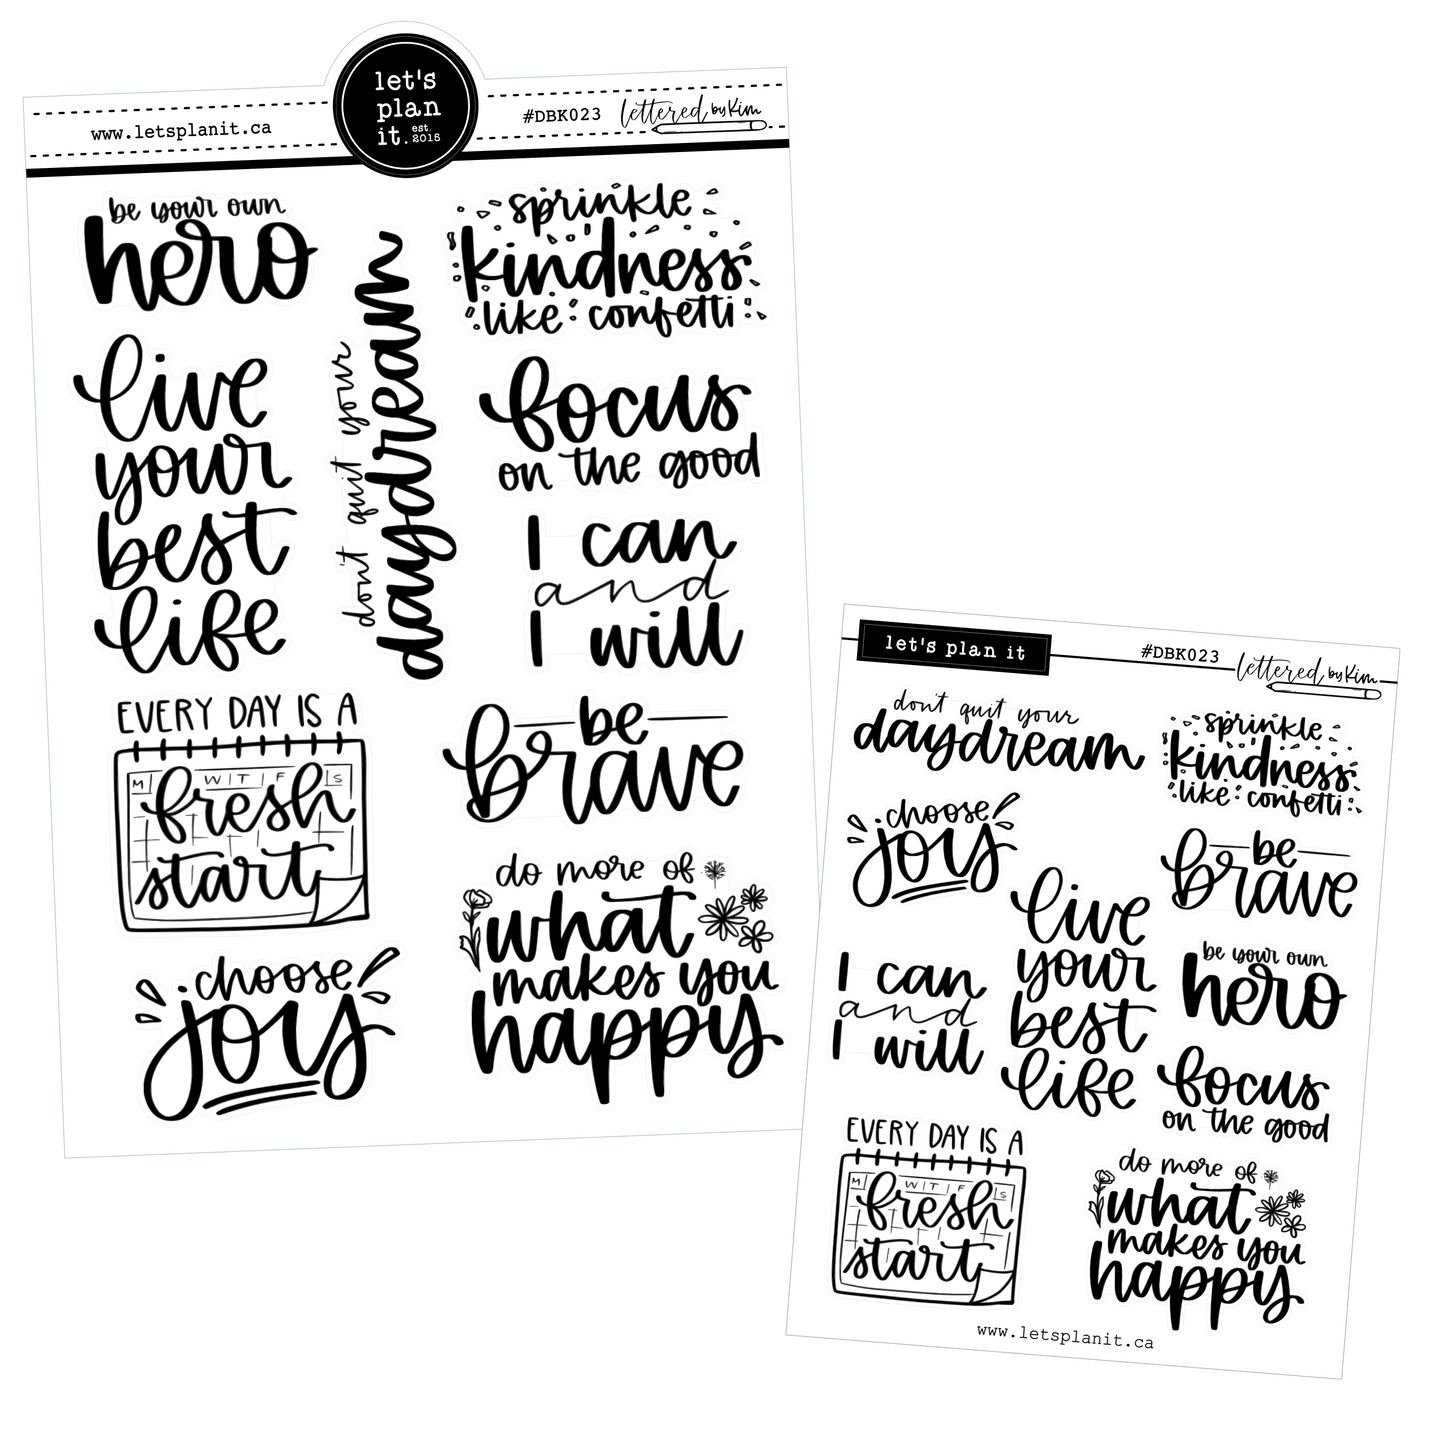 let's
plan
it. est. 2015
www.letsplanit.ca
#DBK023
lettered by Kim
be your own
hero
live
your
best
life
don't quit your
daydream
sprinkle
kindness
like confetti
focus
on the good
I can
and
I will
EVERY DAY IS A
M W T F S
fresh
start
be
brave
choose
joy
do more of
what
makes you
happy
let's plan it
#DBK023
lettered by Kim
don't quit your
daydream
sprinkle
kindness
like confetti
choose
joy
be
brave
live
your
best
life
I can
and
I will
be your own
hero
focus
on the good
EVERY DAY IS A
M W T F S
fresh
start
do more of
what
makes you
happy
www.letsplanit.ca